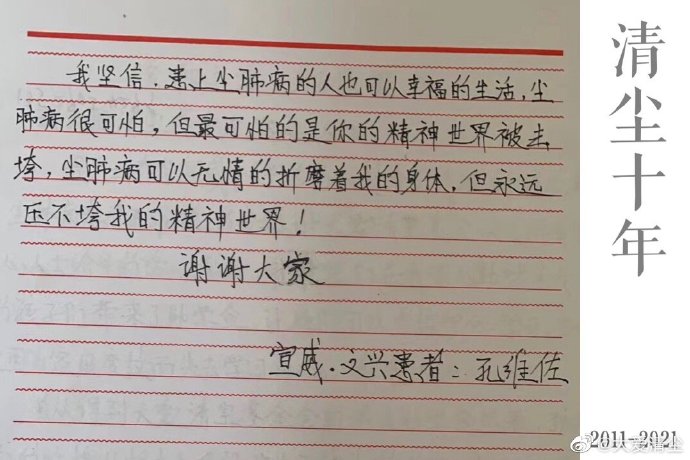 我坚信,患上尘肺病的人也可以幸福的生活,尘
肺病很可怕,但最可怕的是你的精神世界被击
垮,尘肺病可以无情的折磨着我的身体,但永远
压不垮我的精神世界!
谢谢大家
宣威·文兴患者:孔维佐
清尘十年
2011-2021
@大爱清尘